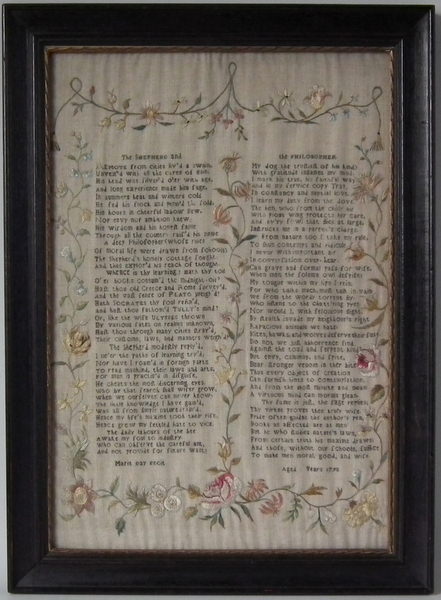 The Shepherd and
Remote from cities liv'd a swain
Unvex'd with all the cares of gain
His head was silver'd o'er with age
And long experience made him sage
In summers heat and winters cold
He fed his flock and penn'd the fold
His hours in cheerful labour flew
Nor envy nor ambition knew
His wisdom and his honest fame
Through all the country rais'd his name
A deep Philosopher whose rules
Of moral life were drawn from schools
The Shepherd's homely cottage sought
And thus explor'd his reach of thought
Whence is thy learning hath thy toil
O'er books consum'd the midnight oil
Hast thou old Greece and Rome survey'd
And the vast sense of Plato weigh'd
Hath Socrates thy soul refin'd
And hast thou fathom'd Tully's mind
Or, like the wise Ulysses thrown
By various fates on realms unknown
Hast thou through many cities stray'd
Their customs, laws, and manners weigh'd
The Shepherd modestly reply'd
I ne'er the paths of learning try'd
Nor have I roam'd in foreign parts
To read mankind, their laws and arts
For man is practis'd in disguise
He cheats the most discerning eyes
Who by that search shall wiser grow
When we ourselves can never know
The little knowledge I have gain'd
Was all from simple nature drain'd
Hence my life's maxims took their rise
Hence grew my settled hate to vice
The daily labours of the bee
Awake my soul to industry
Who can observe the careful ant
And not provide for future want
the Philosopher
My dog the trustiest of his kind
With gratitude inflames my mind
I mark his true, his faithful way
And in my service copy Tray
In constancy and nuptial love
I learn my duty from the dove
The hen, who from the chilly air
With pious wing protects her care
And every fowl that flies at large
Instructs me in a parent's charge
From nature too I take my rule
To shun contempt and ridicule
I never with important air
In conversation over-bear
Can grave and formal pass for wise
When men the solemn owl despise
My tongue within my lips I rein
For who talks much must talk in vain
We from the wordy torrent fly
Who listens to the chattering pye
Nor would I, with felonious flight
By stealth invade my neighbour's right
Rapacious animals we hate
Kites, hawks, and wolves deserve their fate
Do not we just abhorrence find
Against the toad and serpent kind
But envy, calumny, and spite
Bear stronger venom in their bite
Thus every object of creation
Can furnish hints to contemplation
And from the most minute and mean
A virtuous mind can morals glean
Thy fame is just, the Sage replies
Thy virtue proves thee truly wise
Pride often guides the author's pen
Books as affected are as men
But he who studies nature's laws
From certain truth his maxims draws
And those, without our schools, suffice
To make men moral, good, and wise
Aged Years